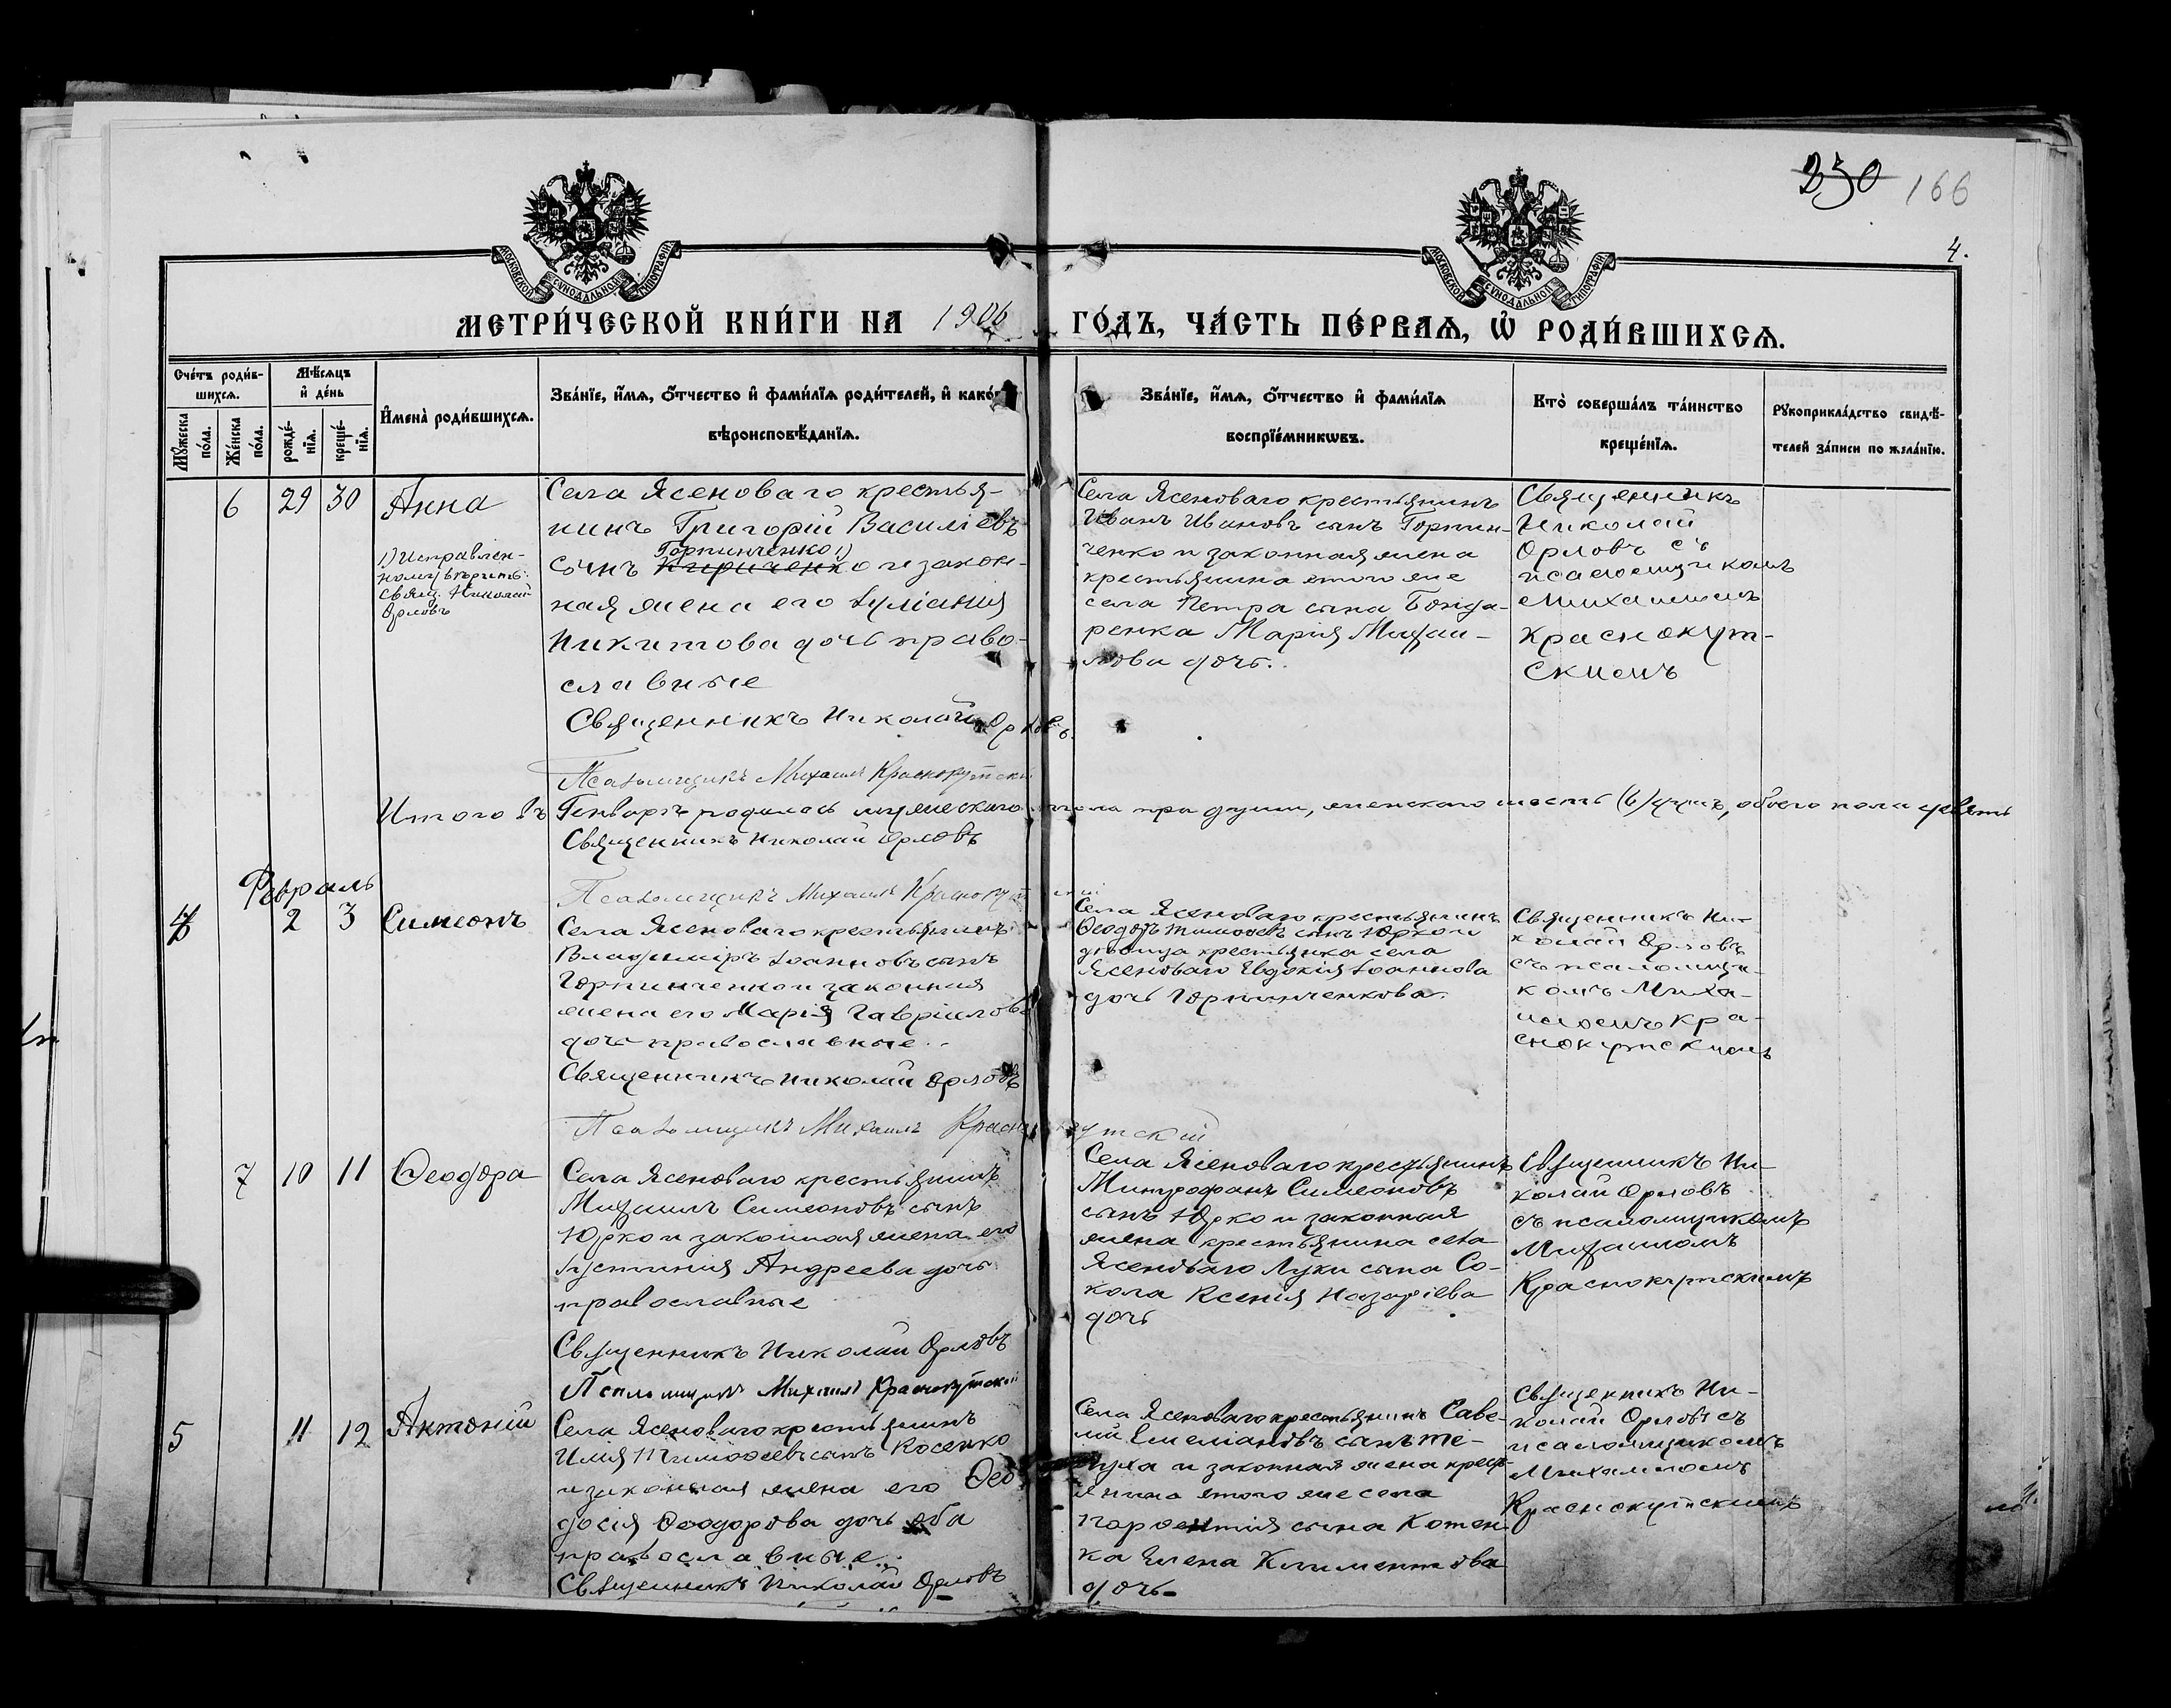 230 166
4.
МОСКОВСКОЙ СѴНОДАЛЬНОЙ ТИПОГРАФІИ
МОСКОВСКОЙ СѴНОДАЛЬНОЙ ТИПОГРАФІИ
МЕТРИ́ЧЕСКОЙ КНИ́ГИ НА 1906 ГО́ДЪ, ЧА́СТЬ ПЕ́РВАѦ, Ѿ РОДИ́ВШИХСѦ.
Сче́тъ роди́в-
шихсѧ.
Мꙋ́жеска по́ла.
Же́нска по́ла.
Мѣ́сѧцъ
и҆ де́нь
рожде́-
нїѧ.
креще́-
нїѧ.
И҆мена̀ роди́вшихсѧ.
Зва́нїе, и҆́мѧ, ѻ҆́тчество и҆ фами́лїѧ роди́телей, и҆ како́гѡ
вѣроисповѣ́данїѧ.
Зва́нїе, и҆́мѧ, ѻ҆́тчество и҆ фами́лїѧ
воспрїе́мникѡвъ.
Кто̀ соверша́лъ та́инство
креще́нїѧ.
Рꙋкоприкла́дство свидѣ́-
телей за́писи по жела́нїю.
6 29 30 Анна
1) Исправлен-
ному вѣрить:
Свящ. Николай
Орловъ
Села Ясеноваго крестья-
нинъ Григорій Василіевъ
Горпинченко 1)
сынъ Кириченко и закон-
ная жена его Іуліанія
Никитова дочь право-
славные
Священникъ Николай Орловъ.
Псаломщикъ Михаилъ Краснокутскій
Села Ясеноваго крестьянинъ
Иванъ Ивановъ сынъ Горпин-
ченко и законная жена
крестьянина этого же
села Петра сына Бонда-
ренка Марія Михаи-
лова дочь.
Священникъ
Николай
Орловъ съ
псаломщикомъ
Михаиломъ
Краснокут-
скимъ
Итого въ Генварѣ родилось мужескаго пола три души, женскаго шесть (6) душъ, обоего пола девять
Священникъ Николай Орловъ
Псаломщикъ Михаилъ Краснокутскій
Февраль
4 2 3 Симеонъ
Села Ясеноваго крестьянинъ
Владиміръ Іоанновъ сынъ
Горпинченко и законная
жена его Марія Гавріилова
дочь православные.
Священникъ Николай Орловъ
Псаломщикъ Михаилъ Краснокутскій
Села Ясеноваго крестьянинъ
Ѳеодоръ Тимоѳеевъ сынъ Юрко и
дѣвица крестьянка села
Ясеноваго Евдокія Іоаннова
дочь Горпинченкова.
Священникъ Ни-
колай Орловъ
съ псаломщи-
комъ Миха-
иломъ Кра-
снокутскимъ
7 10 11 Ѳеодора
Села Ясеноваго крестьянинъ
Михаилъ Симеоновъ сынъ
Юрко и законная жена его
Іустинія Андреева дочь
православные
Священникъ Николай Орловъ
Псаломщикъ Михаилъ Краснокутскій
Села Ясеноваго крестьянинъ
Митрофанъ Симеоновъ
сынъ Юрко и законная
жена крестьянина села
Ясеноваго Луки сына Со-
кола Ксенія Назаріева
дочь
Священникъ Ни-
колай Орловъ
съ псаломщикомъ
Михаиломъ
Краснокутскимъ
5 11 12 Антоній
Села Ясеноваго крестьянинъ
Илія Тимоѳеевъ сынъ Косенко
и законная жена его Ѳео-
досія Ѳеодорова дочь оба
православные.
Священникъ Николай Орловъ
Села Ясеноваго крестьянинъ Саве-
лій Емеліановъ сынъ
и законная жена крест-
янина этого же села
Парѳентія сына Котен-
ка Елена Климентова
дочь
Священникъ Ни-
колай Орловъ съ
псаломщикомъ
Михаиломъ
Краснокутскимъ